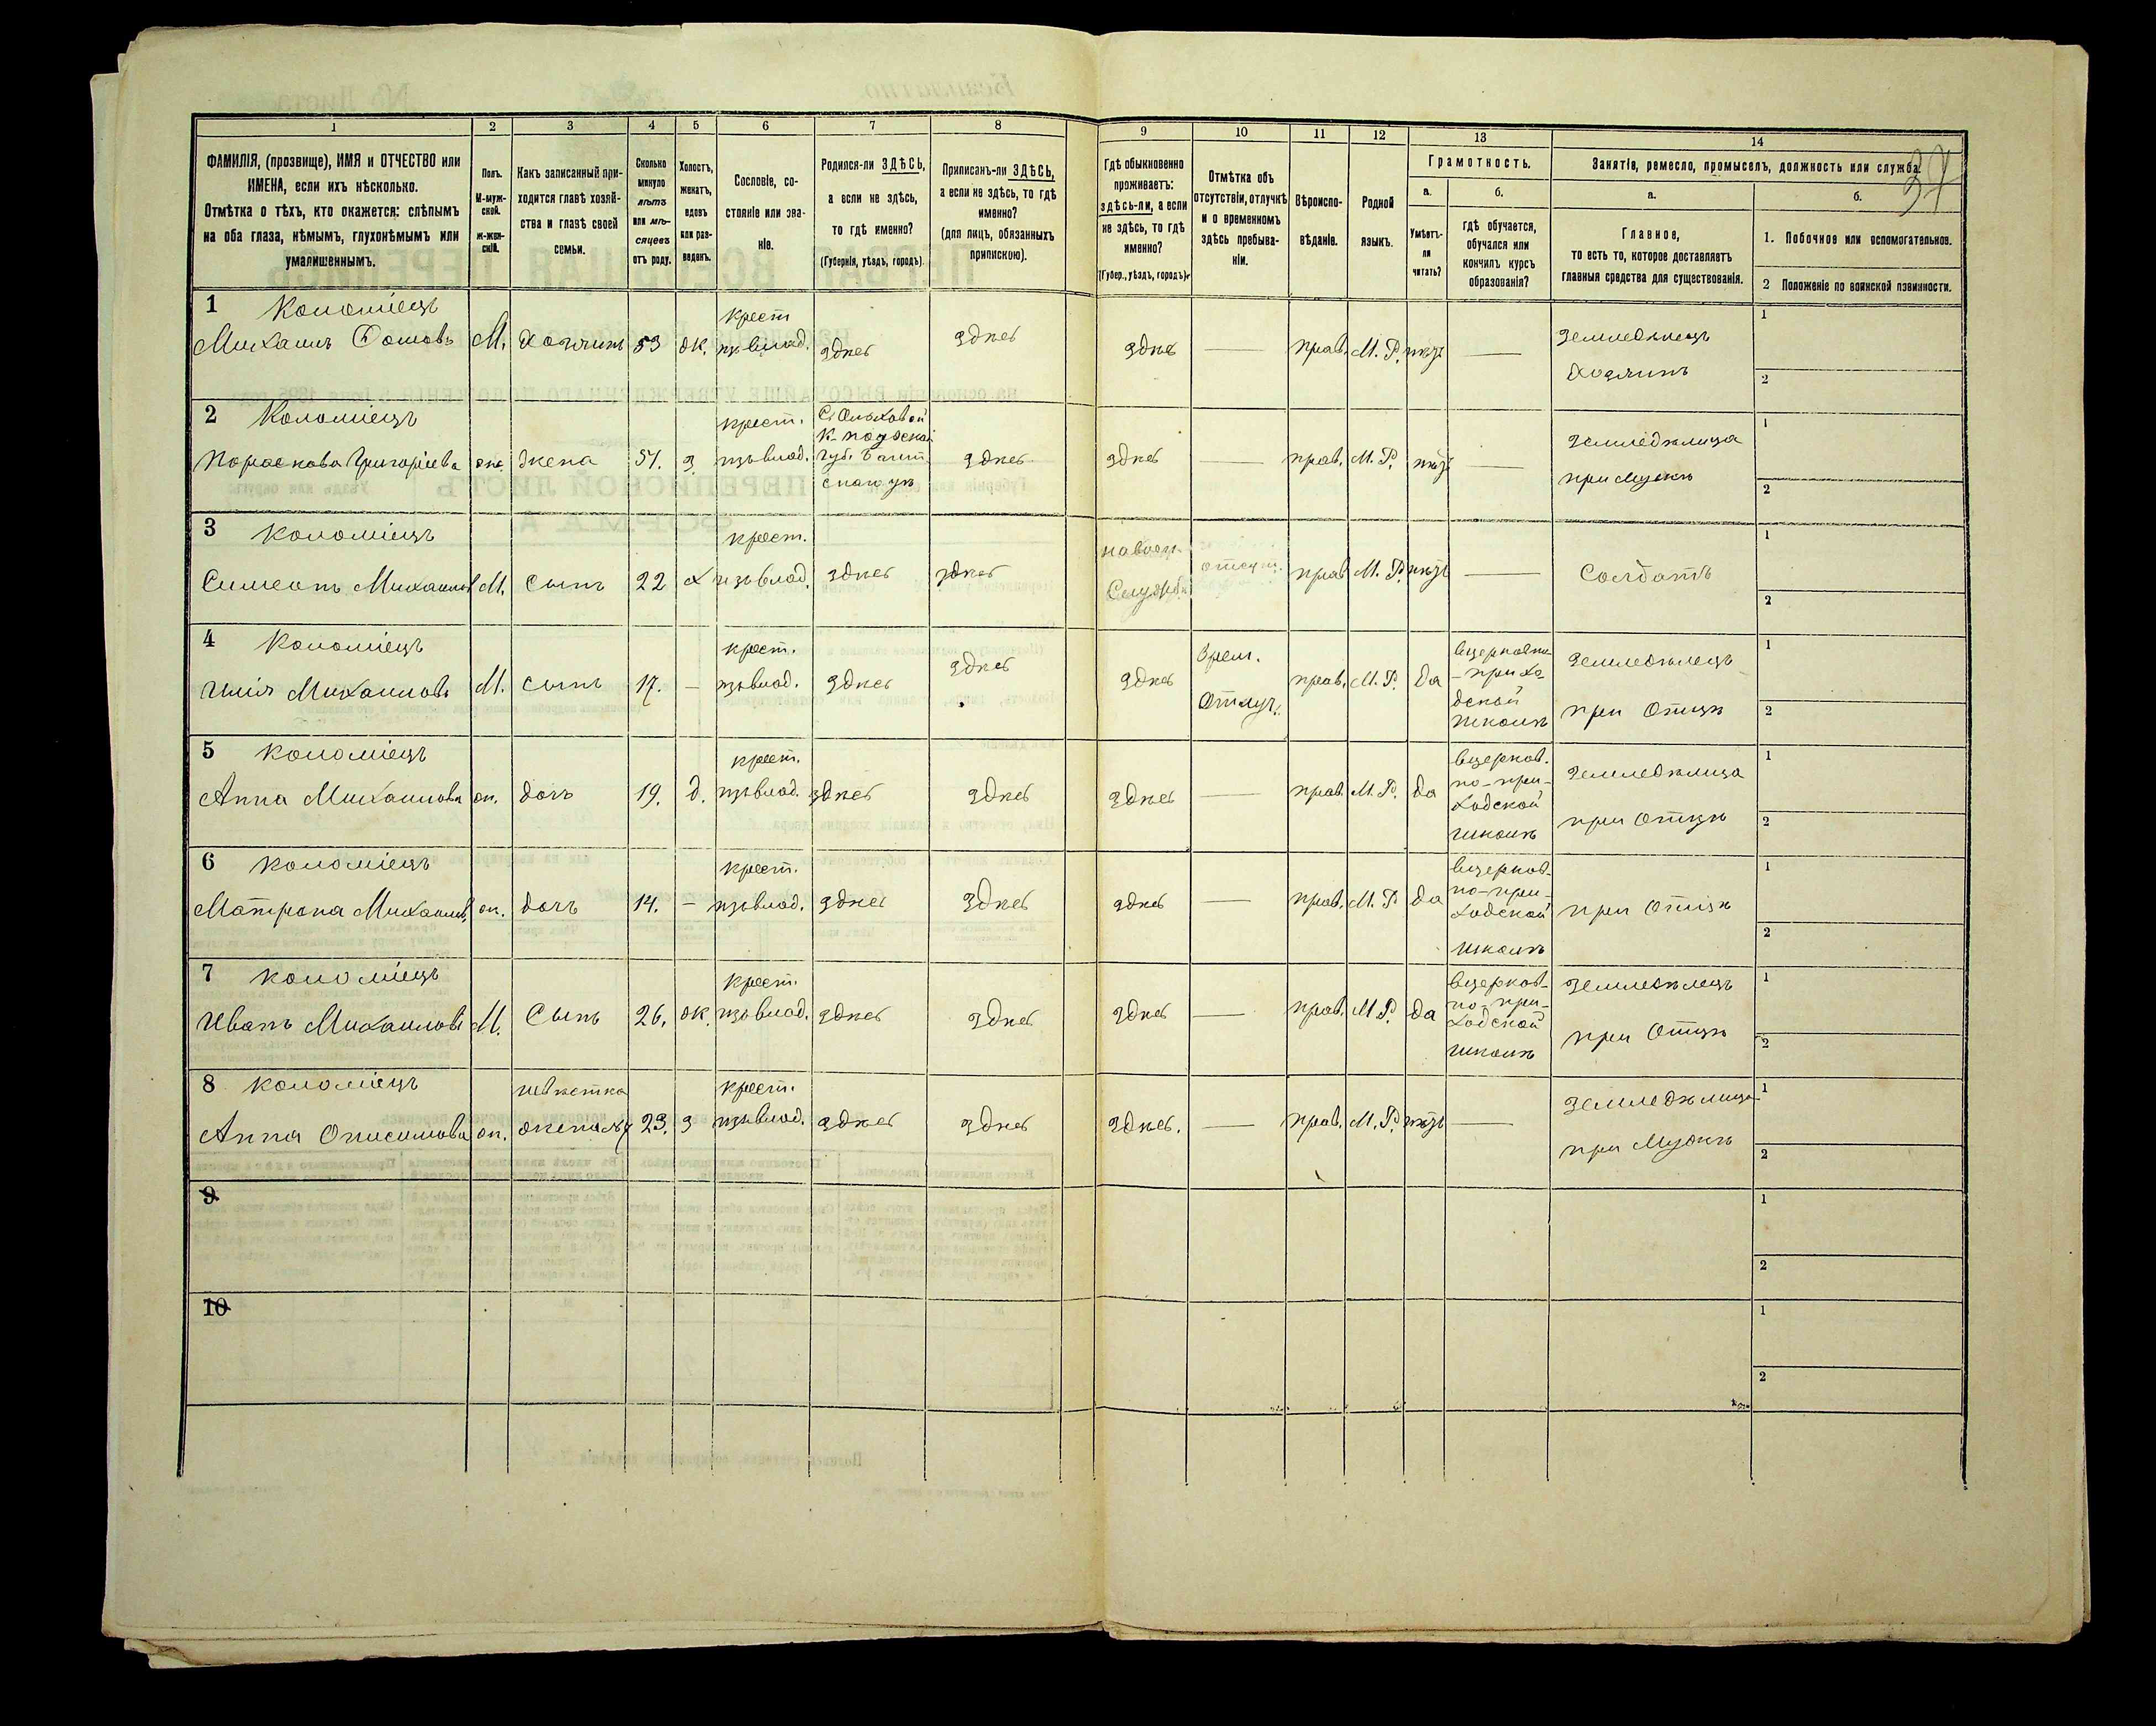 37
1 2 3 4 5 6 7 8 9 10 11 12 13 14
ФАМИЛІЯ, (прозвище), ИМЯ и ОТЧЕСТВО или
ИМЕНА, если ихъ нѣсколько.
Отмѣтка о тѣхъ, кто окажется: слѣпымъ
на оба глаза, нѣмымъ, глухонѣмымъ или
умалишеннымъ.
Полъ.
М-муж-
ской.
ж-жен-
скій.
Какъ записанный при-
ходится главѣ хозяй-
ства и главѣ своей
семьи.
Сколько
минуло
лѣтъ
или мѣ-
сяцевъ
отъ роду.
Холостъ,
женатъ,
вдовъ
или раз-
веденъ.
Сословіе, со-
стояніе или зва-
ніе.
Родился-ли ЗДѢСЬ,
а если не здѣсь,
то гдѣ именно?
(Губернія, уѣздъ, городъ).
Приписанъ-ли ЗДѢСЬ,
а если не здѣсь, то гдѣ
именно?
(для лицъ, обязанныхъ
припискою).
Гдѣ обыкновенно
проживаетъ:
здѣсь-ли, а если
не здѣсь, то гдѣ
именно?
(Губер., уѣздъ, городъ).
Отмѣтка объ
отсутствіи, отлучкѣ
и о временномъ
здѣсь пребыва-
ніи.
Вѣроиспо-
вѣданіе.
Родной
языкъ.
Грамотность.
а.
Умѣетъ-
ли
читать?
б.
Гдѣ обучается,
обучался или
кончилъ курсъ
образованія?
Занятія, ремесло, промыселъ, должность или служба.
а.
Главное,
то есть то, которое доставляетъ
главныя средства для существованія.
б.
1. Побочное или вспомогательное.
2 Положеніе по воинской повинности.
1 Коломіецъ
Михаилъ М. Хозяинъ 53 ж. крест. изъ влад. здѣсь здѣсь здѣсь — прав. М. Р. нѣтъ — Земледѣлецъ
Хозяинъ
1
2
2 Коломіецъ
Параскова Григоріева ж. жена 51. з. крест. изъ влад. С. Ольховой
К-подоской
губ. здѣсь здѣсь — прав. М. Р. нѣтъ — Земледѣлица
при Мужѣ
1
2
3 Коломіецъ
Симеонъ Михаиловъ М. Сынъ 22 х крест. изъ влад. здѣсь здѣсь на воен.
Службѣ прав. М. Р. нѣтъ — Солдатъ
1
2
4 Коломіецъ
Илія Михаиловъ М. сынъ 17. — крест. изъ влад. здѣсь здѣсь здѣсь Врем.
Отлуч. прав. М. Р. да въ церковно
-прихо-
дской
школѣ Земледѣлецъ
при Отцѣ
1
2
5 Коломіецъ
Анна Михаилова ж. дочь 19. д. крест. изъ влад. здѣсь здѣсь здѣсь — прав. М. Р. да въ церков.
но-при-
ходской
школѣ Земледѣлица
при Отцѣ
1
2
6 Коломіецъ
Матрона Михаилов. ж. дочь 14. — крест. изъ влад. здѣсь здѣсь здѣсь — прав. М. Р. да въ церков-
но-при-
ходской
школѣ при Отцѣ
1
2
7 Коломіецъ
Иванъ Михаиловъ М. Сынъ 26. ж. крест. изъ влад. здѣсь здѣсь здѣсь — прав. М. Р. да въ церков-
но-при-
ходской
школѣ Земледѣлецъ
при Отцѣ
1
2
8 Коломіецъ
Анна Онисимова ж. невѣстка
жена № 7 23. з крест. изъ влад. здѣсь здѣсь здѣсь. — прав. М. Р. нѣтъ — Земледѣлица
при Мужѣ
1
2
9
1
2
10
1
2